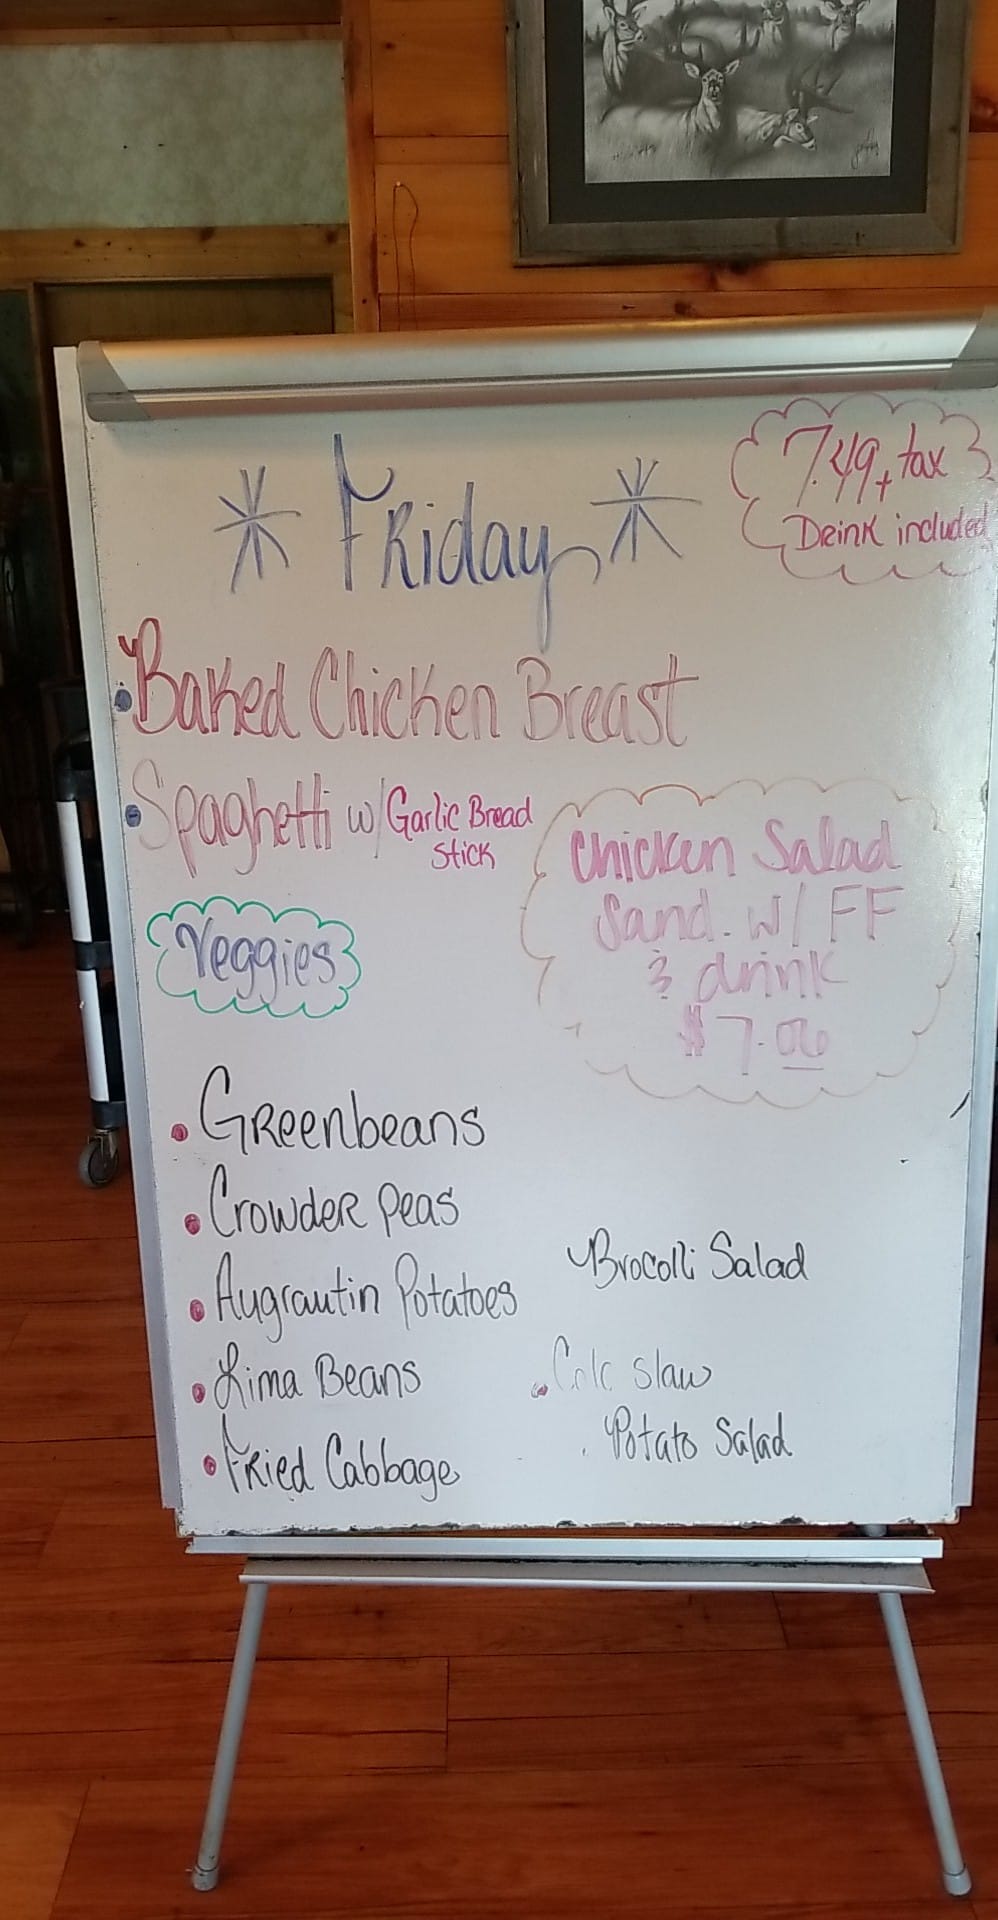 * Friday *
7.49 + tax
Drink included
• Baked Chicken Breast
• Spaghetti w/ Garlic Bread
Stick
Chicken Salad
Sand. w/ FF
& drink
$7.06
Veggies
• Greenbeans
• Crowder Peas
• Augrautin Potatoes
• Lima Beans
• Fried Cabbage
Brocolli Salad
• Cole slaw
Potato Salad